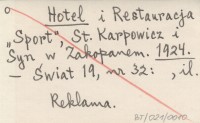 Hotel i Restauracja
„Sport", St. Karpowicz i
Syn w Zakopanem. 1924.
— Świat 19, nr 32: , il.
Reklama.